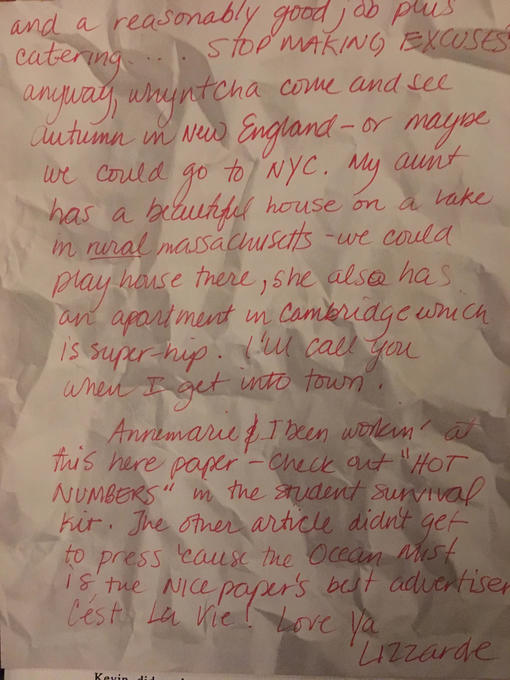 and a reasonably good job plus
catering.... STOP MAKING EXCUSES
anyway, whyntcha come and see
autumn in New England - or maybe
we could go to NYC. My aunt
has a beautiful house on a lake
in rural massachusetts - we could
play house there, she also has
an apartment in Cambridge which
is super-hip. I'll call you
when I get into town.
Annemarie & I been workin' at
this here paper - check out "HOT
NUMBERS" in the student survival
kit. The other article didn't get
to press 'cause the Ocean Mist
is the NICE paper's best advertiser
C'ést La Vie! Love Ya
Lizzarde
Kevin